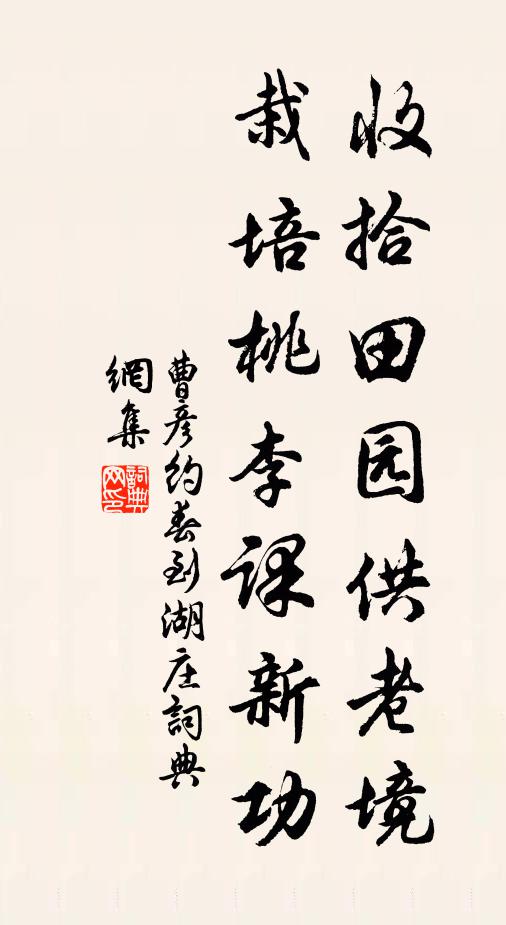 收拾田园供老境
栽培桃李课新功
曹彦约春到湖庄詞典
網集
詞典
网印